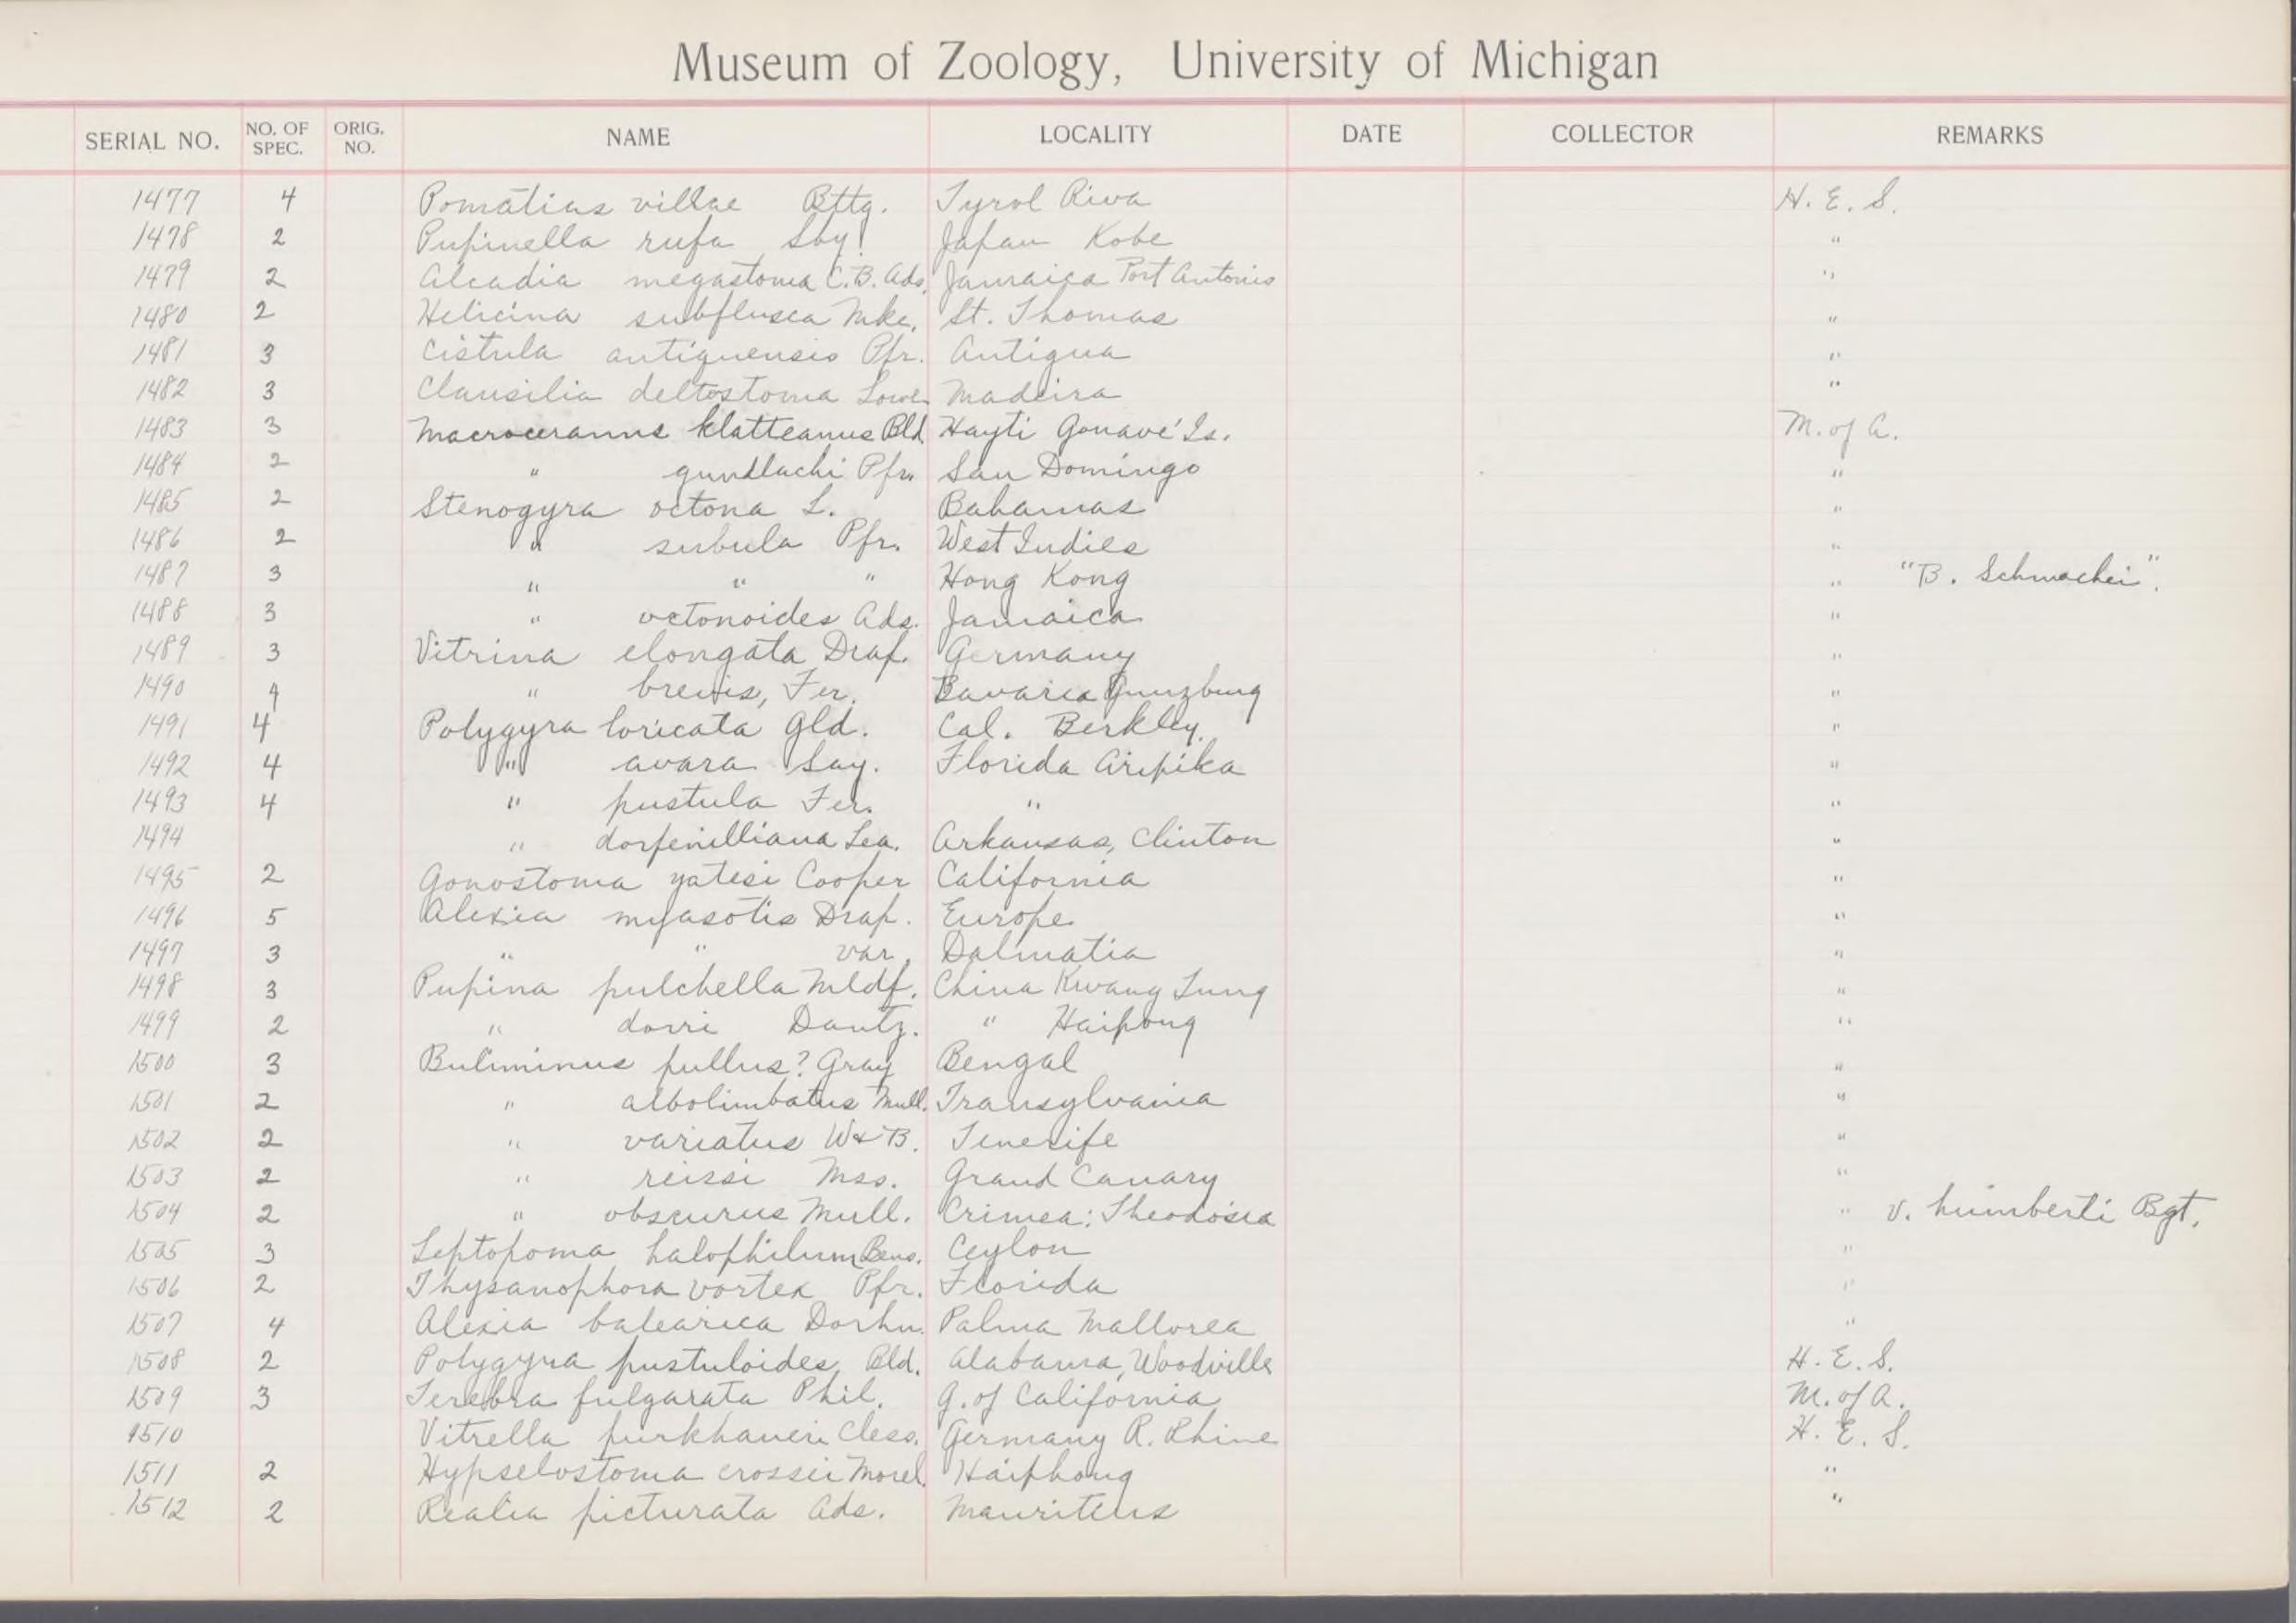 Museum of Zoology, University of Michigan
SERIAL NO. NO. OF SPEC. ORIG. NO. NAME LOCALITY DATE COLLECTOR REMARKS
1477 4 Pomatias villae Bttg. Tyrol Riva H. E. S.
1478 2 Pupinella rufa Sby. Japan Kobe "
1479 2 Alcadia megastoma C.B. Ads. Jamaica Port Antonio "
1480 2 Helicina subflusca Mke. St. Thomas "
1481 3 Cistula antiguensis Pfr. Antigua "
1482 3 Clausilia deltostoma Lowe Madeira "
1483 3 Macroceramus klatteanus Bld. Hayti Gonavé Is. M. of A.
1484 2 " gundlachi Pfr. San Domingo "
1485 2 Stenogyra octona L. Bahamas "
1486 2 " subula Pfr. West Indies "
1487 3 " " " Hong Kong " "B. Schmackei".
1488 3 " octonoides Ads. Jamaica "
1489 3 Vitrina elongata Drap. Germany "
1490 4 " brevis, Fer. Bavaria Gunzburg "
1491 4 Polygyra loricata Gld. Cal. Berkley. "
1492 4 " avara Say. Florida Aripika "
1493 4 " pustula Fer. " "
1494 " dorfeuilliana Lea. Arkansas, Clinton "
1495 2 Gonostoma yatesi Cooper California "
1496 5 Alexia myasotis Drap. Europe "
1497 3 " " var. Dalmatia "
1498 3 Pupina pulchella Mldf. China Kwang Tung "
1499 2 " dorri Dautz. " Haipong "
1500 3 Buliminus pullus? Gray Bengal "
1501 2 " albolimbatus Mull. Transylvania "
1502 2 " variatus W & B. Tenerife "
1503 2 " reissi Mss. Grand Canary "
1504 2 " obscurus Mull. Crimea: Theodosia " v. humberti Bgt.
1505 3 Leptopoma halophilum Bens. Ceylon "
1506 2 Thysanophora vortex Pfr. Florida "
1507 4 Alexia balearica Dorhn. Palma Mallorca "
1508 2 Polygyra pustuloides Bld. Alabama, Woodville H. E. S.
1509 3 Terebra fulgarata Phil. G. of California M. of A.
1510 Vitrella purkhaueri Cless. Germany R. Rhine H. E. S.
1511 2 Hypselostoma crossei Morel. Haiphong "
1512 2 Realia picturata Ads. Mauritius "